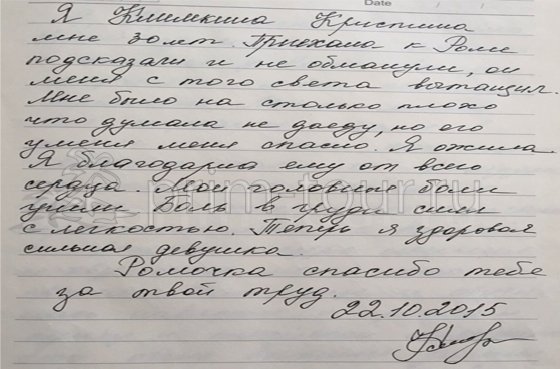 Date
Я Климкина Кристина
мне 30 лет. Приехала к Роме
подсказали и не обманули, он
меня с того света вытащил.
Мне было на столько плохо
что думала не доеду, но его
умения меня спасло. Я ожила.
Я благодарна ему от всего
сердца. Мои головные боли
ушли боль в груди снял
с легкостью. Теперь я здоровая
сильная девушка.
Ромочка спасибо тебе
за твой труд.
22.10.2015